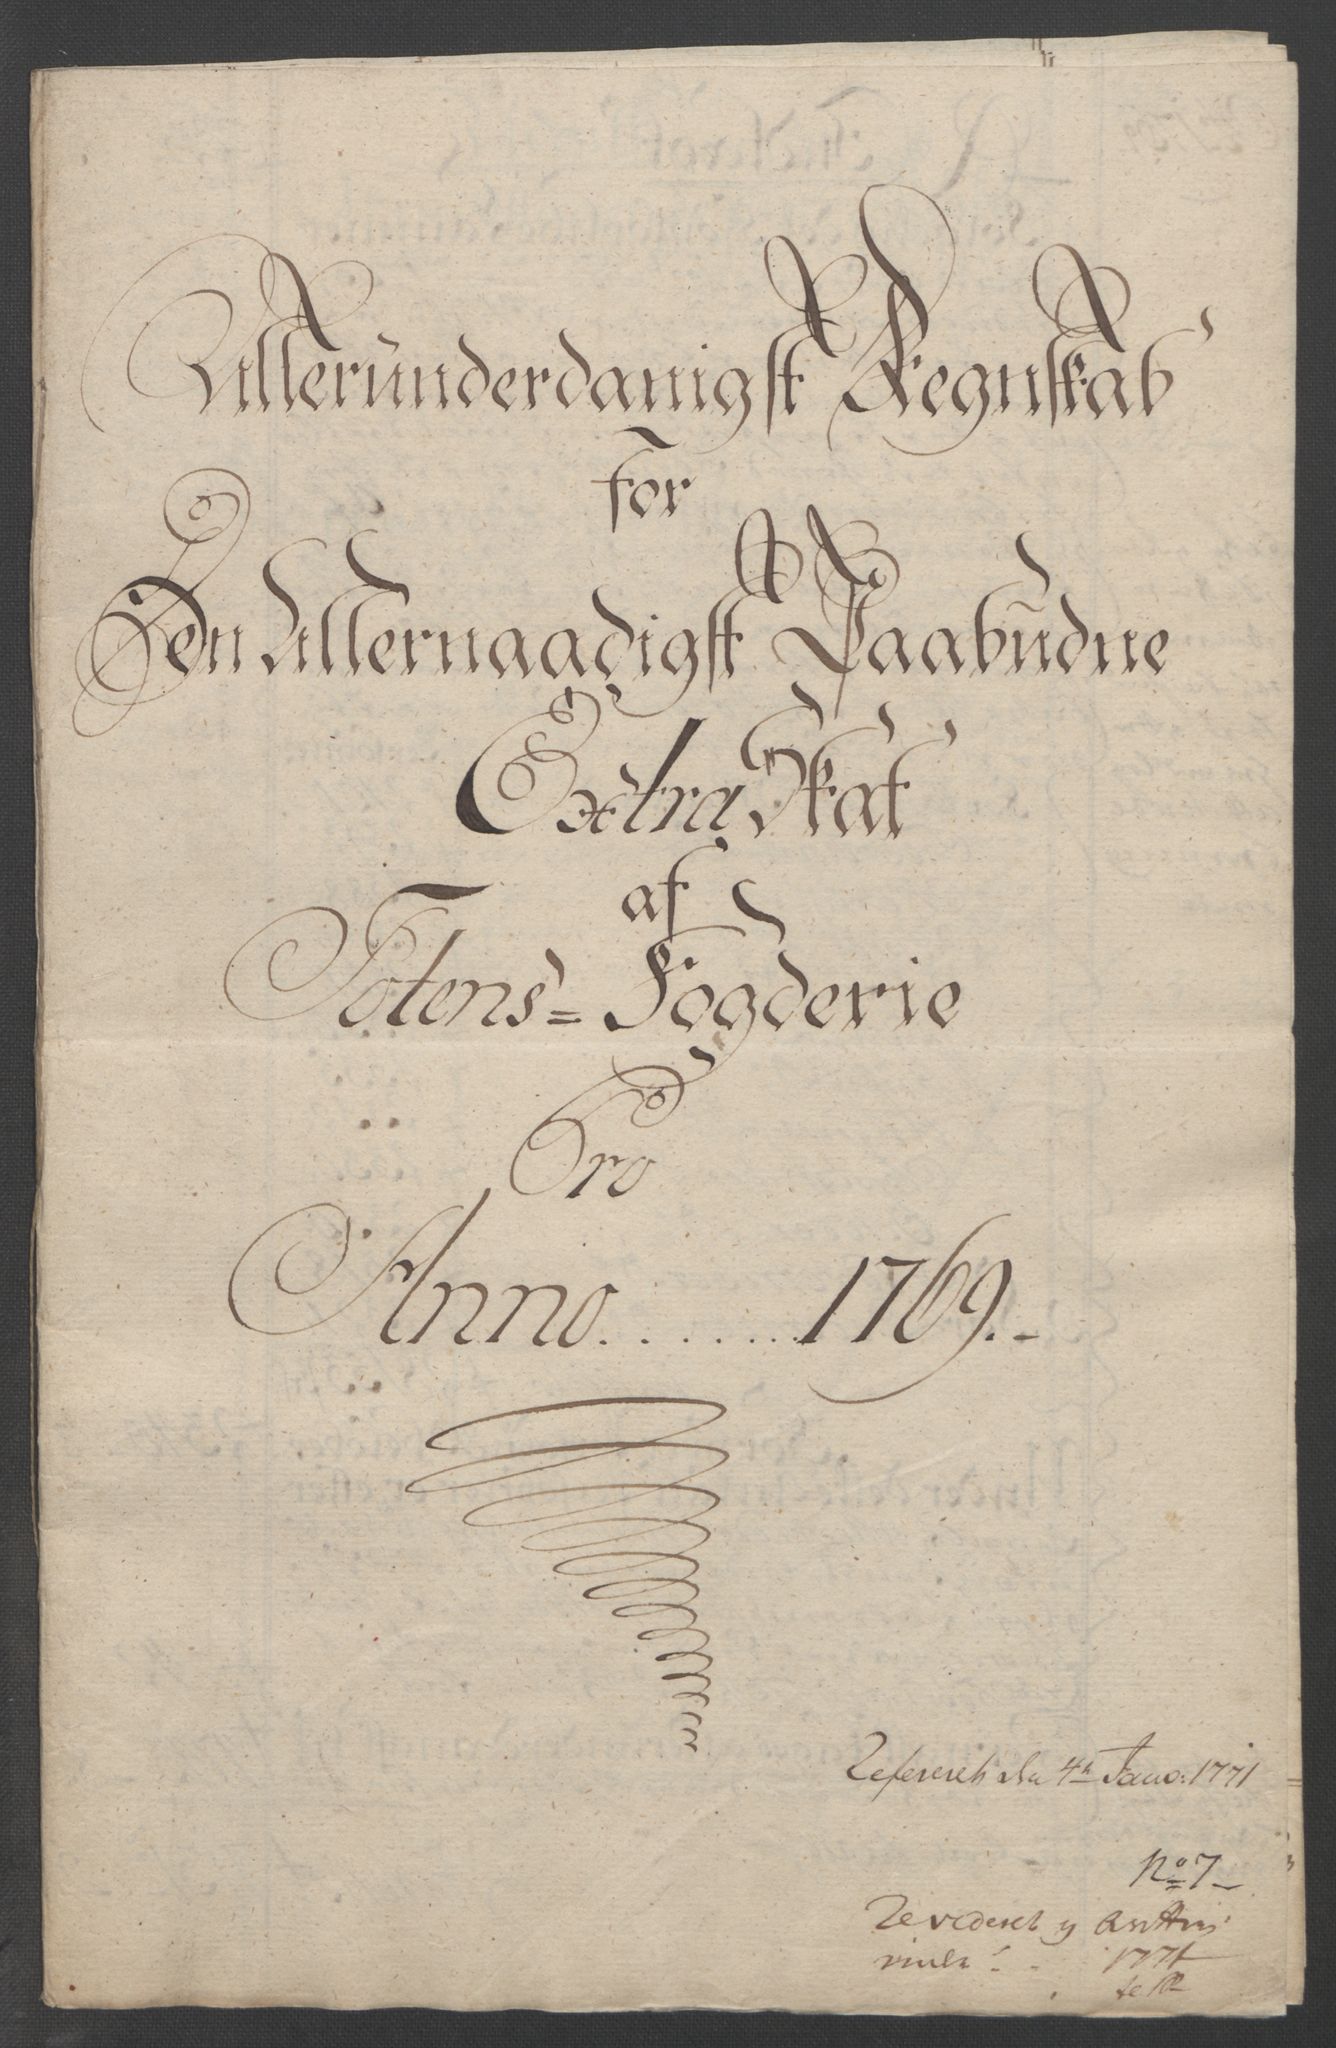 Alleründerdanigst Regnskab
for
Den Allernaadigst Paabŭdne
Extra Skat
af
Totens = Fogderie
Pro
Anno........1769.-
Refereret den 4de Janv: 1771
No 7
Revideret og
1771